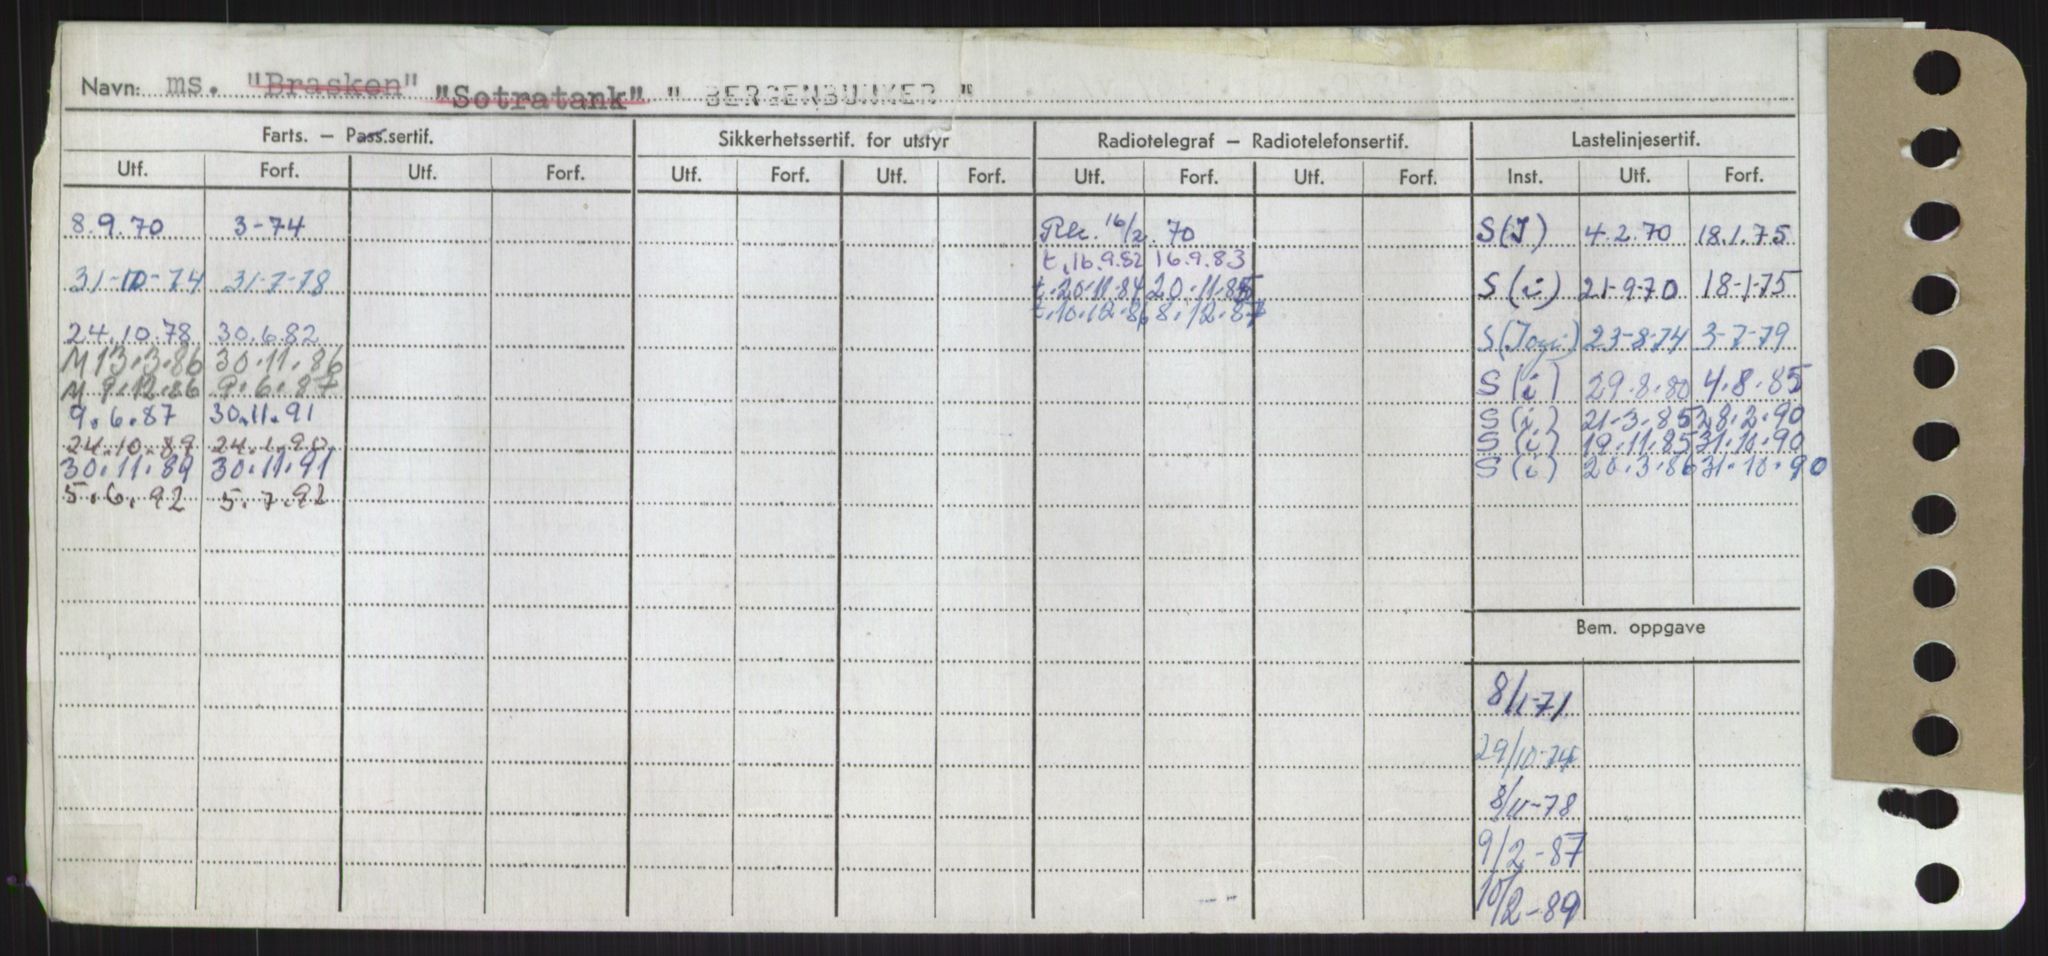 Navn: ms. "Brasken" "Sotratank" " BERGENBUNKER "
Farts. – Pass.sertif. Sikkerhetssertif. for utstyr Radiotelegraf – Radiotelefonsertif. Lastelinjesertif.
Utf. Forf. Utf. Forf. Utf. Forf. Utf. Forf. Utf. Forf. Utf. Forf. Inst. Utf. Forf.
8.9.70 3-74 16/2.70 S(I) 4.2.70 18.1.75
t.16.9.82 16.9.83
31-10-74 31-7-78 t.20.11.84 20.11.85 S(i) 21-9-70 18-1-75
t.10.12.86 8.12.87
24.10.78 30.6.82 23-8-74 3-7-79
M 13.3.86 30.11.86
M 9.12.86 9.6.87 S(i) 29.8.80 4.8.85
9.6.87 30.11.91 S(i) 21.3.85 28.2.90
24.10.89 24.1.90 S(i) 19.11.85 31.10.90
30.11.89 30.11.91 S(i) 20.3.86 31.10.90
5.6.92 5.7.92
Bem. oppgave
8/1-71
29/10-74
8/11-78
9/2-87
10/2-89